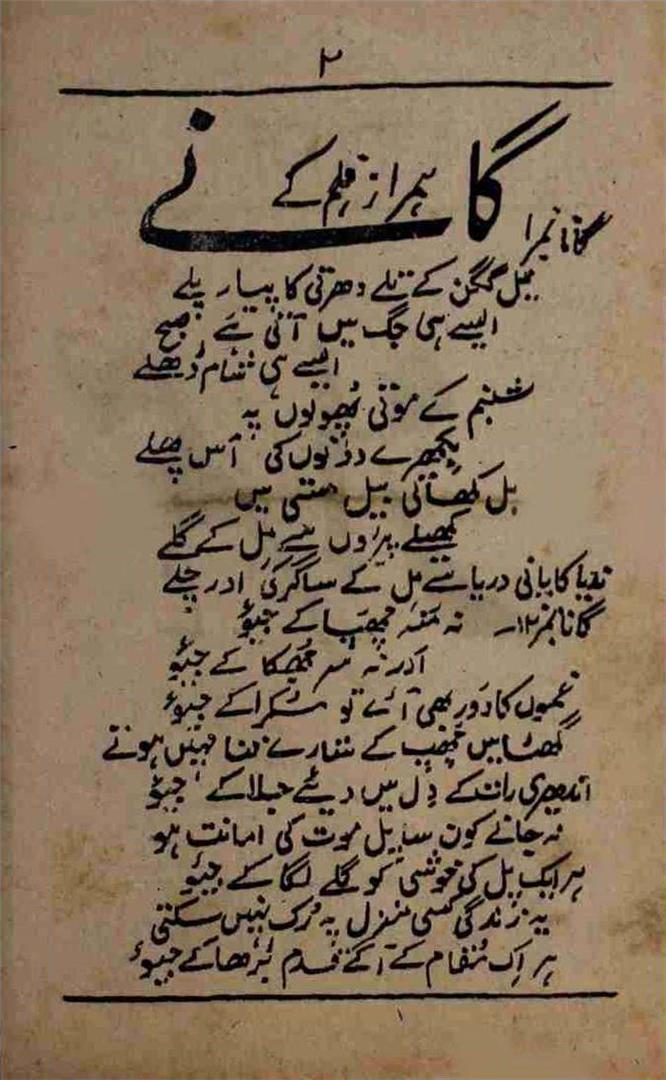 ۲
گانے
ہمراز فلم کے
گانا نمبر ۱
نیل گگن کے تلے دھرتی کا پیار پلے
ایسے ہی جگ میں آتی ہے صبح
ایسے ہی شام ڈھلے
شبنم کے موتی پھولوں پہ
بکھرے دونوں کی آس پھلے
بل کھاتی بیل مستی میں
کھیلے پیڑوں سے مل کے گلے
ندیا کا پانی دریا سے مل کے ساگر کی اور چلے
گانا نمبر ۲ا۔ نہ منہ چھپا کے جیؤ
اور نہ سر جھکا کے جیؤ
غموں کا دَور بھی آئے تو مسکرا کے جیؤ
گھٹا میں چھپ کے ستارے فنا نہیں ہوتے
اندھیری رات کے دِل میں دیئے جلا کے جیؤ
نہ جانے کون سا پل موت کی امانت ہو
ہر ایک پل کی خوشی کو گلے لگا کے جیؤ
یہ زندگی کسی منزل پہ رُک نہیں سکتی
ہر اِک مُقام کے آگے قدم بُڑھا کے جیوٴ